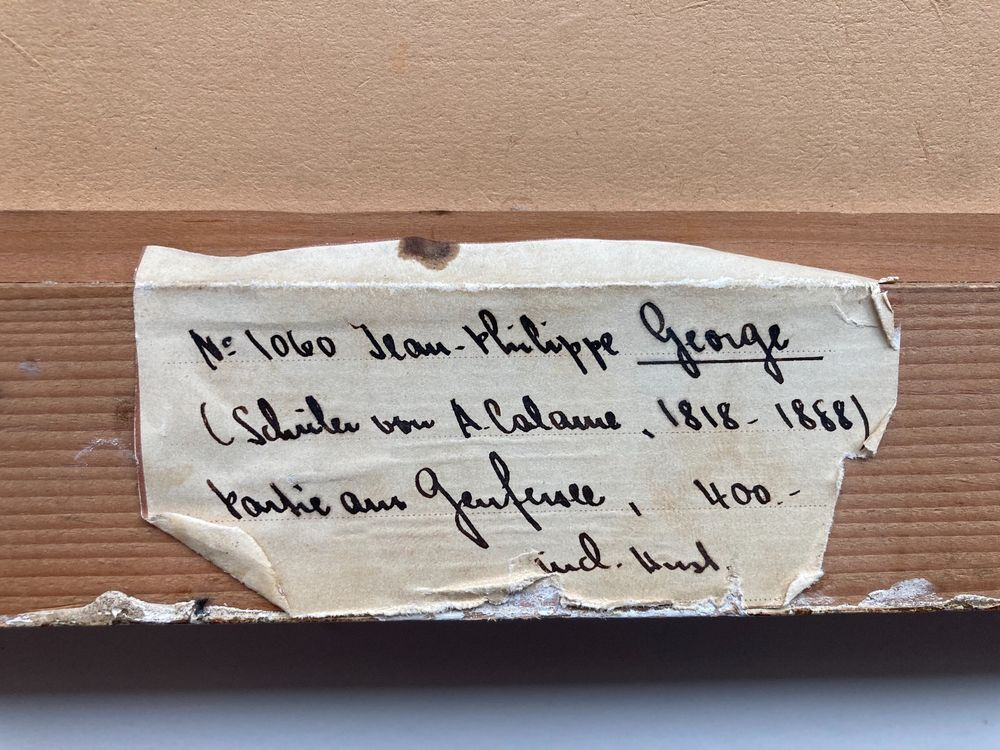 No 1060 Jean-Philippe George
(Schüler von A. Calame, 1818-1888)
Partie am Genfersee, 400.-
incl.